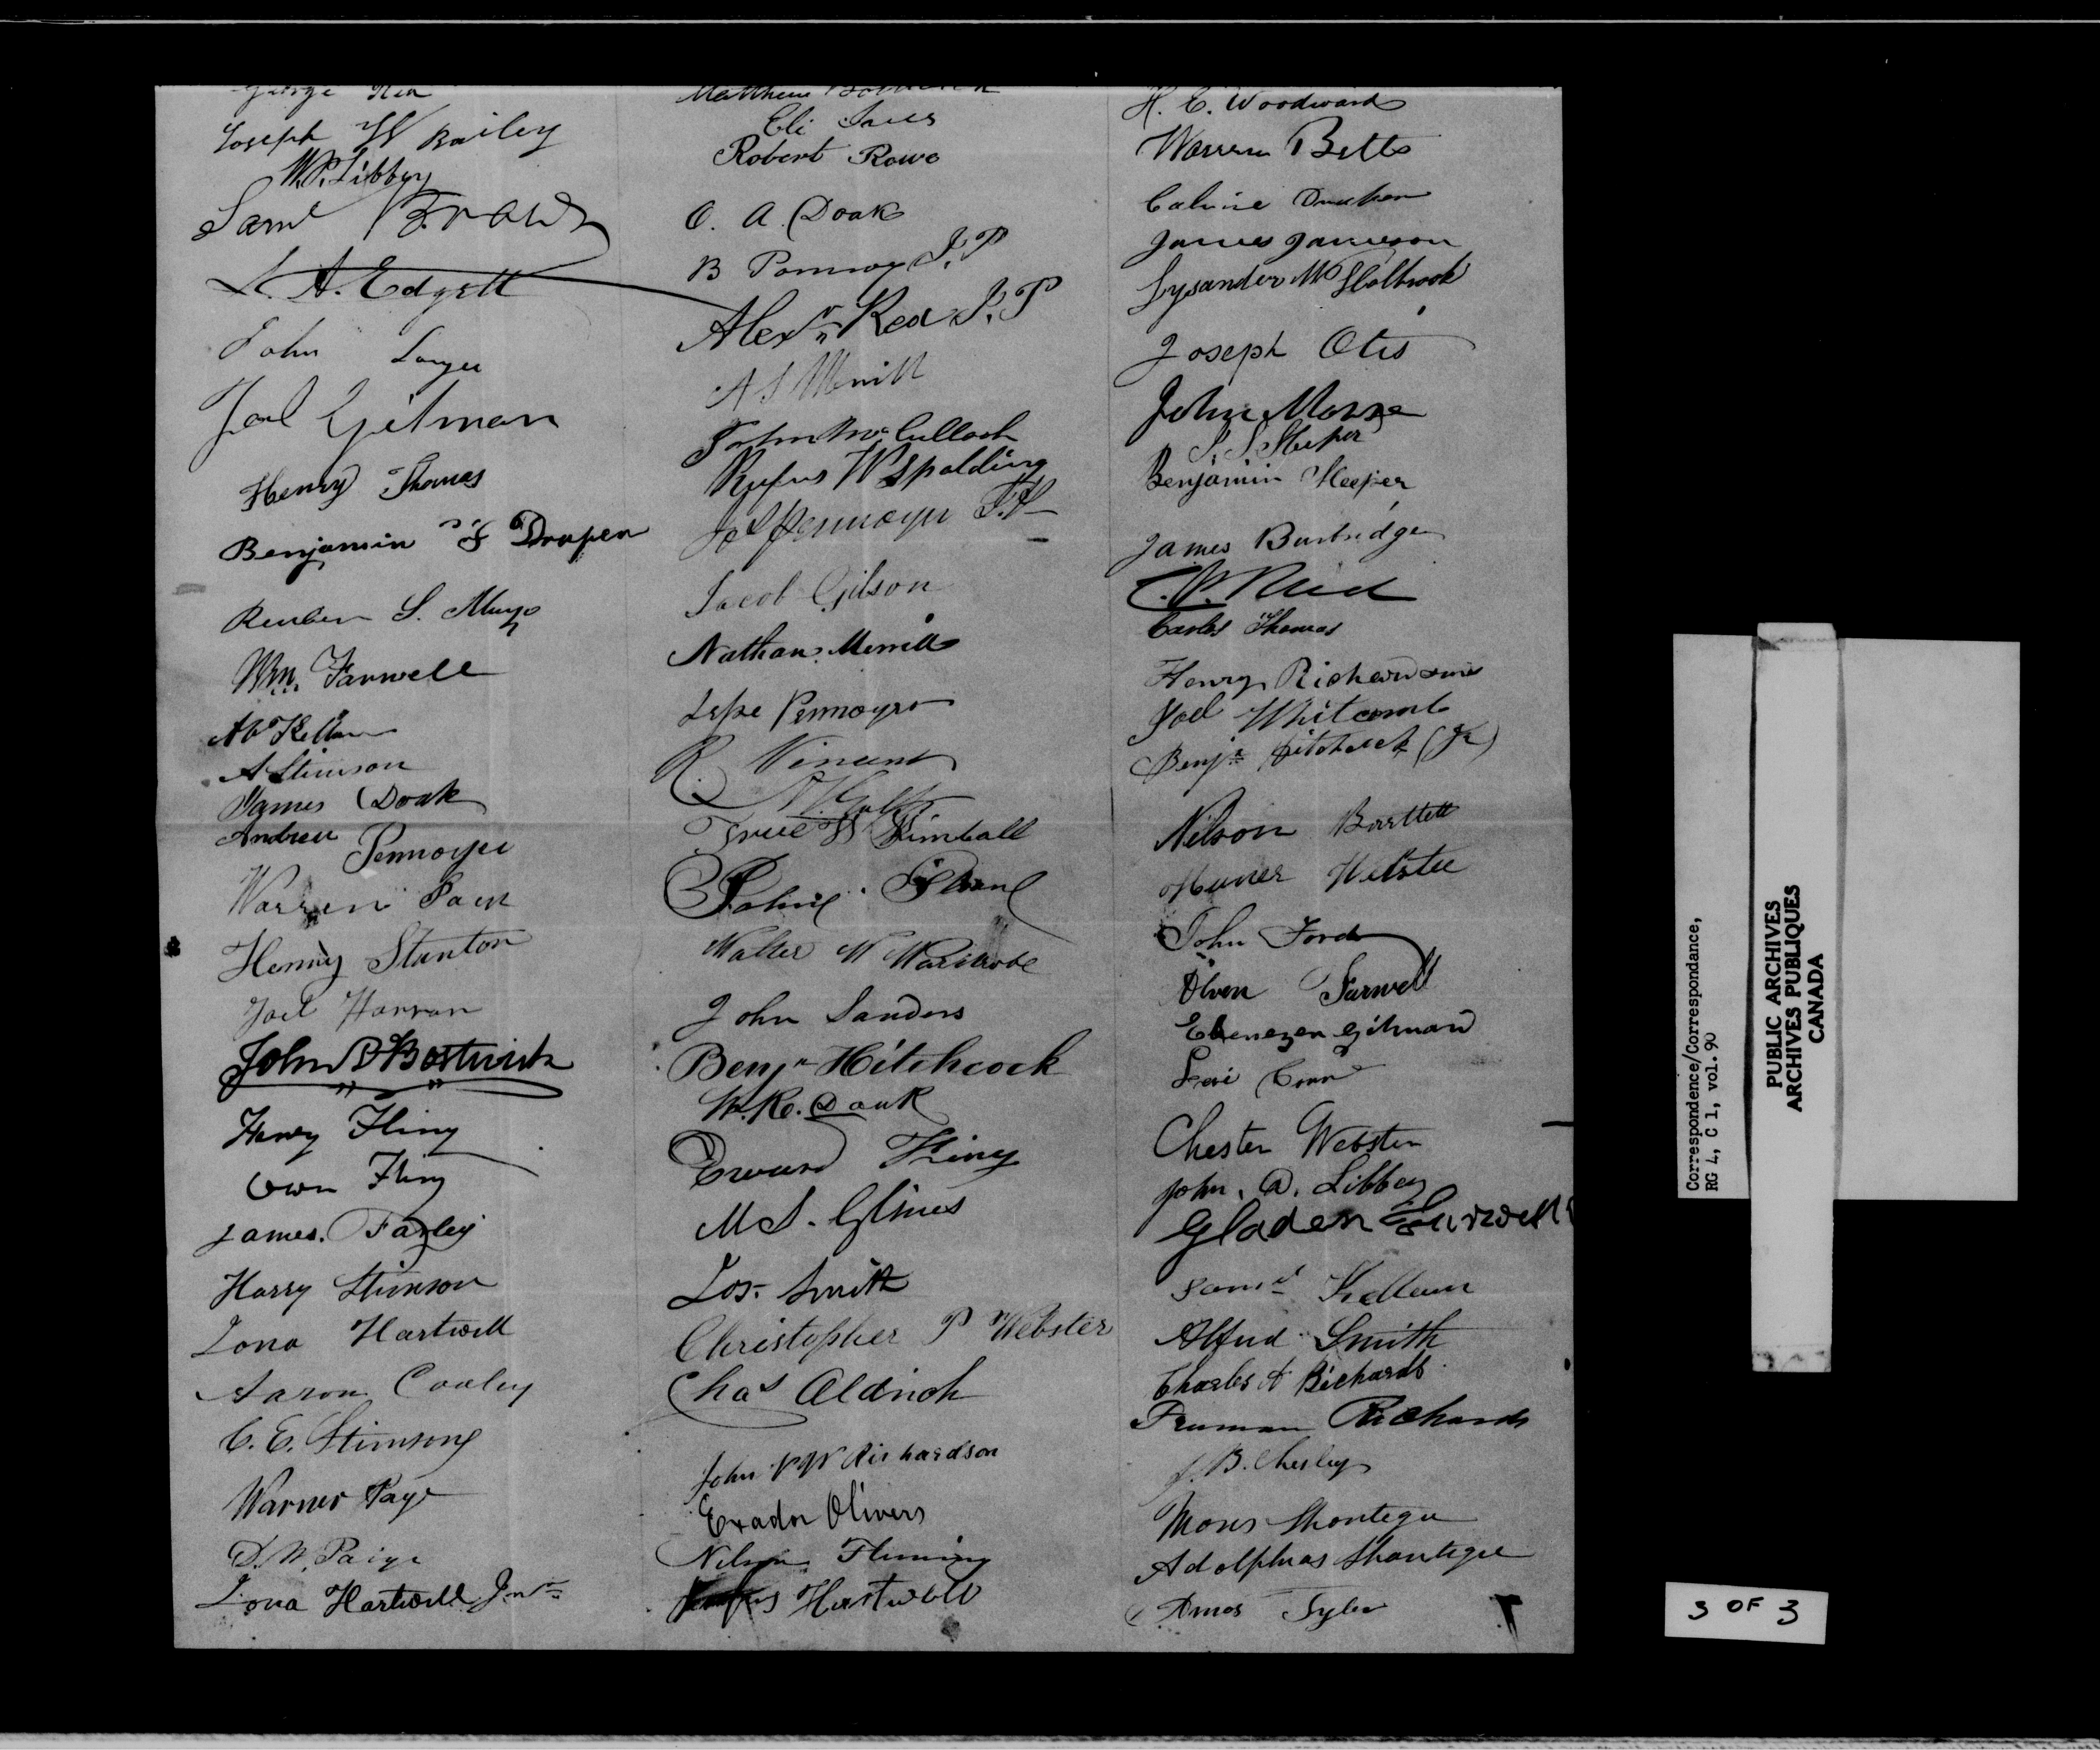 George Rea
Joseph W Bailey
W. P. Libbey
Saml Brown
L. A. Edgell
John
Joel Gilman
Henry Thomas
Benjamin F Draper
Reuben S.
Wm. Farwell
A Stimson
James Doak
Andrew Pennoyer
Warren
Henry Stanton
Joel Hanran
John B Bostwick
Henry Fling
Owen Fling
James. Farley
Harry Stimson
Zona Hartwell
Aaron Cooley
C. E. Stimson
Warner Page
D. W. Paige
Zona Hartwell Junr
Matthew
Eli
Robert Rowe
O. A. Doak
B Pomroy J. P
Alexr Rea J. P
A S Merrill
John McCulloch
Rufus W Spalding
Pennoyer J. P
Jacob Gilson
Nathan Merrill
Pennoyer
R. Vincent
True W Kimball
John
Walter W
John Sanders
Benjn Hitchcock
W. Ro. Doak
Edward Fling
M S. Glines
Jos. Smith
Christopher P Webster
Chas Aldrich
John V W Richardson
Exador Olivers
Nelson Fleming
Rufus Hartwell
H. E. Woodward
Warren Betts
Calvine Draper
James Jameson
Lysander M Holbrook
Joseph Otis
John Morse
S. S. Sleeper
Benjamin Sleeper
James Burbidge
Reid
Carlos Thomas
Henry Richardson
Joel Whitcomb
Benjn Hitchcock (Jr)
Nelson Bartlett
Webster
John Ford
Farwell
Ebenezer Gilman
Levi
Chester Webster
John. A. Libbey
Gladen Farwell
Saml Kellum
Alfred Smith
Charles A Richards
Truman Richards
B. Chesley
Moses Shontegu
Adolphus Shontegue
Amos Tyler
Correspondence/Correspondance,
RG 4, C 1, vol. 90
PUBLIC ARCHIVES
ARCHIVES PUBLIQUES
CANADA
3 OF 3